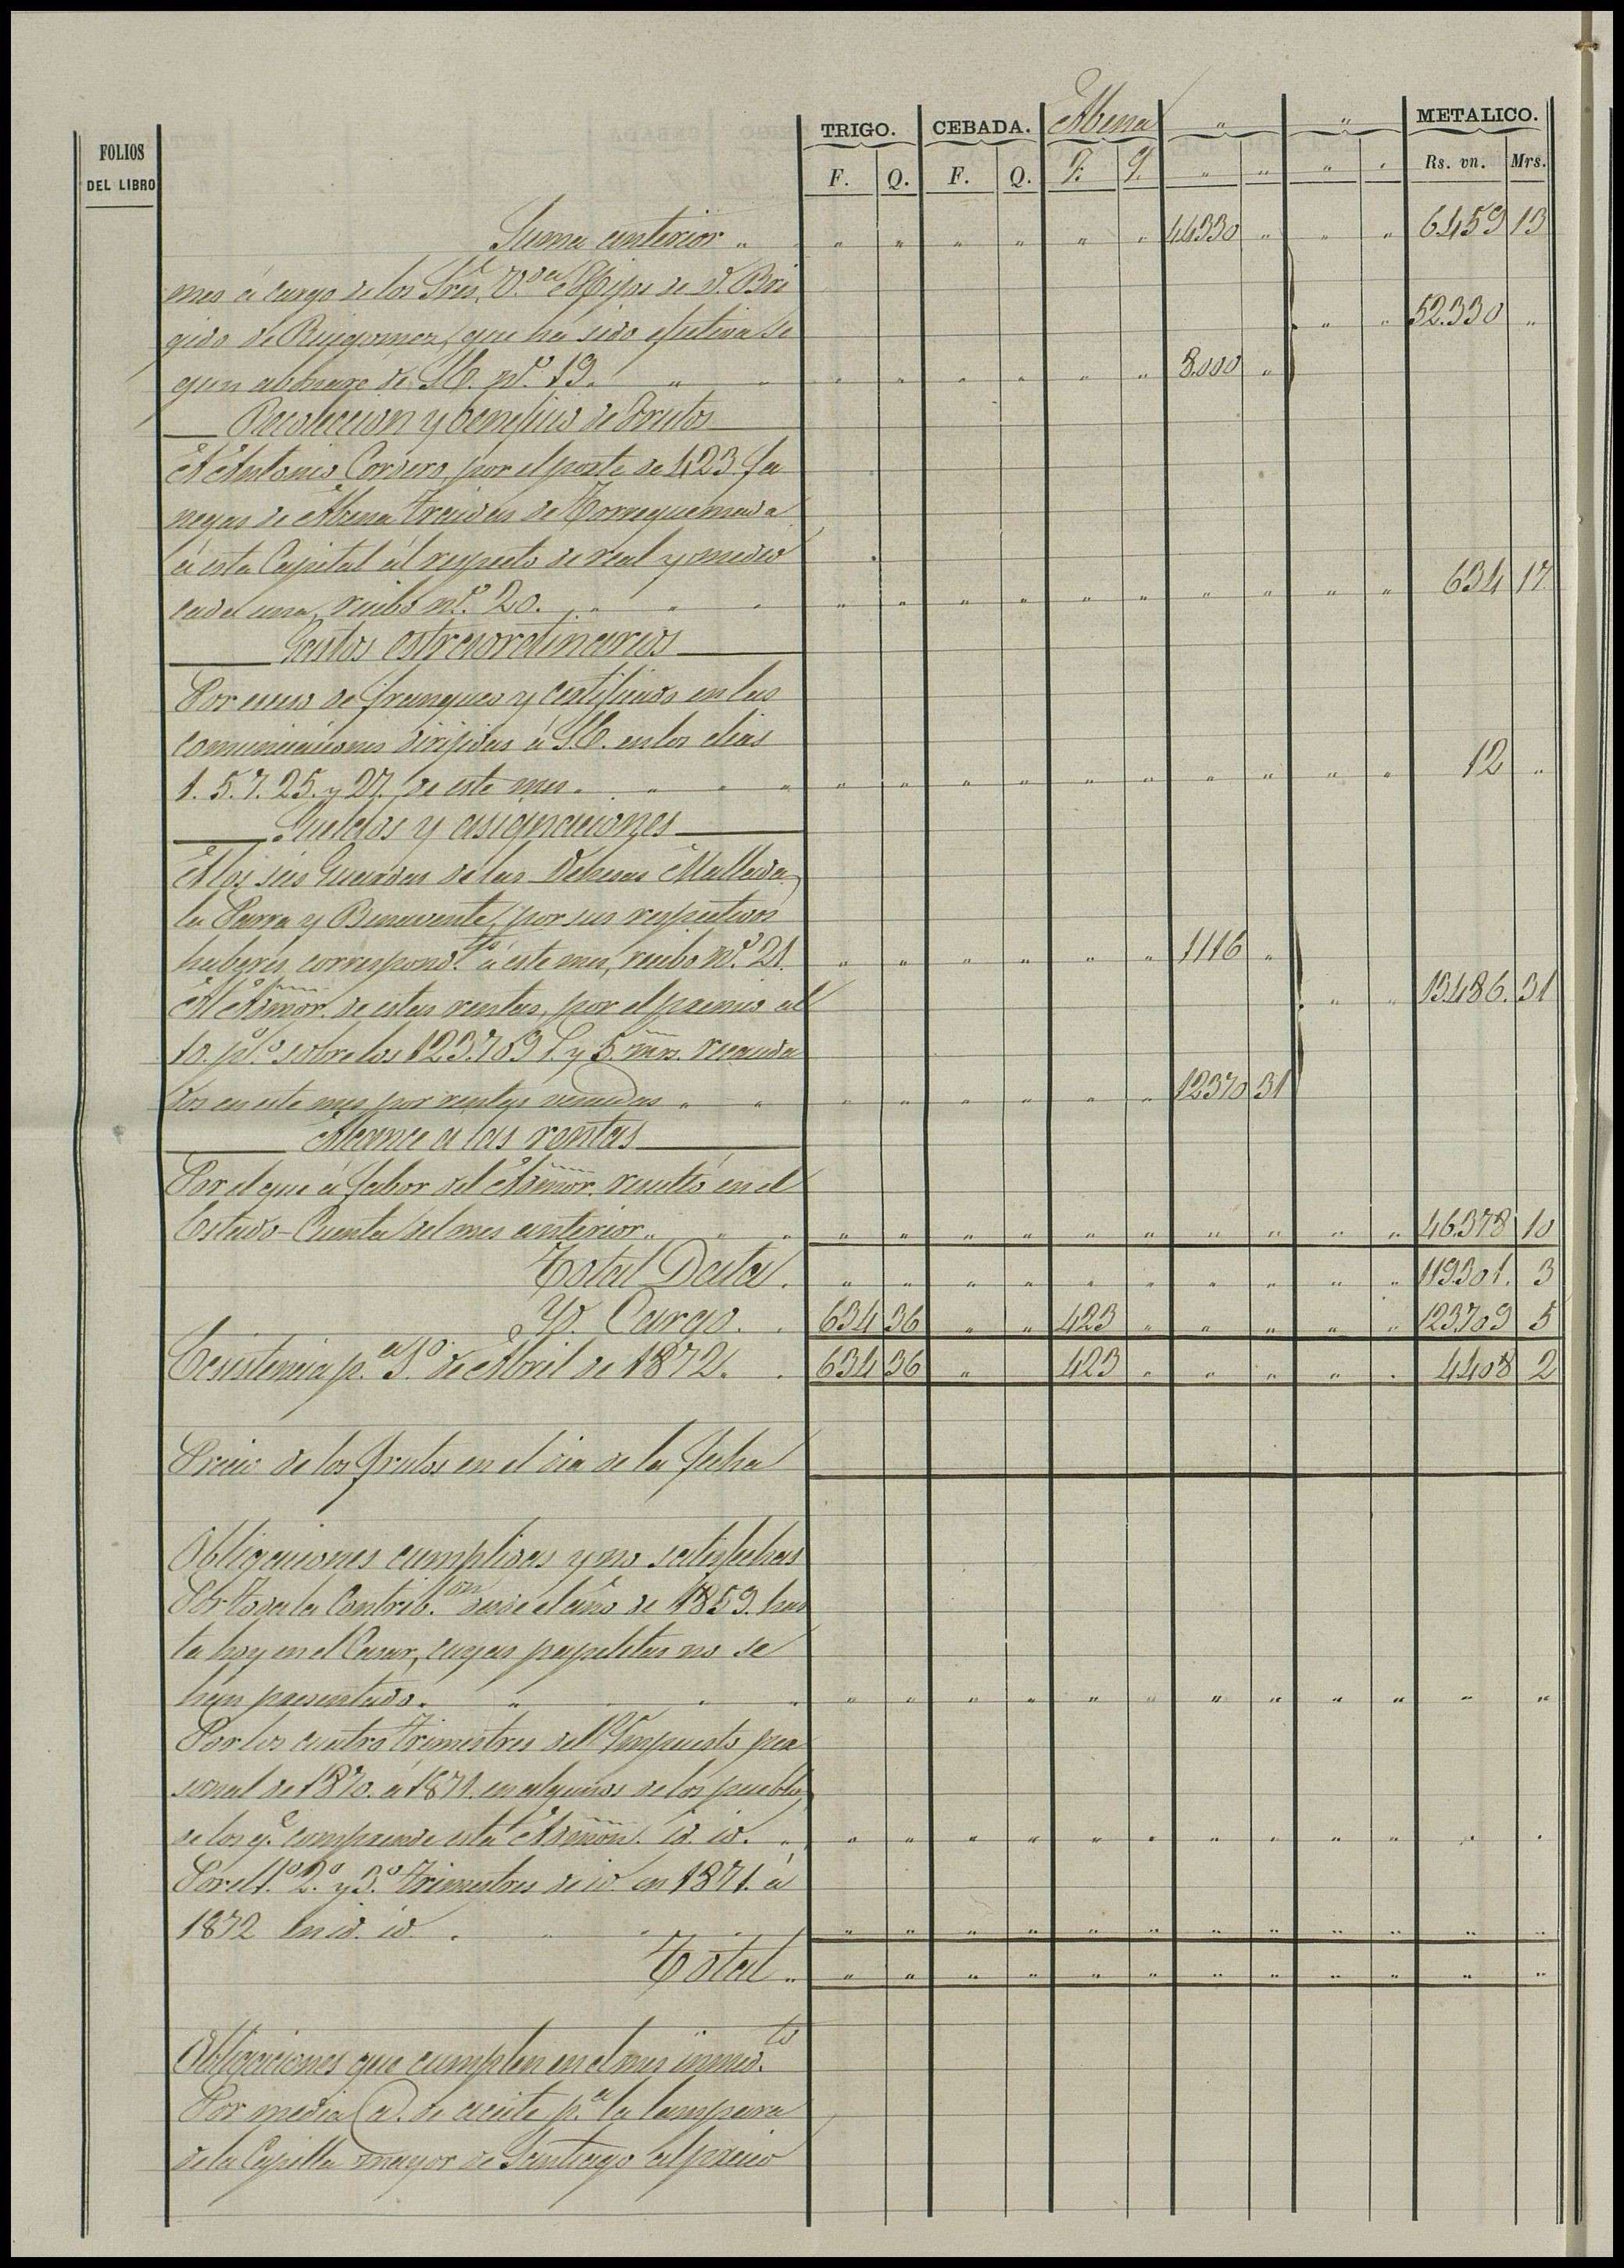 FOLIOS DEL LIBRO TRIGO. CEBADA. Abena " " METALICO.
F. Q. F. Q. F. Q. " " " " Rs. vn. Mrs.
Suma anterior " " " " " " " 44330 " " " 6459 13
mes á cargo de los Sres. V.da é Hijos de D. Bri
gido de Ruigomez, que ha sido efectiva se " " 52.330 "
gun abonaré de S.E. nº. 19. " " " " " " " " 8.000 "
Recoleccion y beneficio de frutos
A Antonio Cordero, por el porte de 423 fa
negas de Abena traidas de Torrequemada
á esta Capital al respecto de real y medio
cada una, recibo nº. 20. " " " " " " " " " " " " " 634 17
Gastos estraordinarios
Por esceso de franqueo y certificado en las
comunicaciones dirijidas á S.E. en los dias
1. 5. 7. 25. y 27. de este mes " " " " " " " " " " " " " 12 "
Sueldos y asignaciones
A los seis Guardas de las Dehesas Mallada,
la Parra y Benavente, por sus respectivos
haberes correspond.tes á este mes, recibo nº. 21. " " " " " " 1116 "
Al Admor. de estas rentas, por el premio al " " 13486. 31
10. p.º sobre los 123.709 r. y 5 mrs. recauda
dos en este mes por rentas vencidas " " " " " " " " 12370 31
Alcance a las rentas
Por el que á fabor del Admor. resultó en el
Estado-Cuenta del mes anterior " " " " " " " " " " " " " 46378 10
Total Data. " " " " " " " " " " 119301. 3
Yd. Cargo. 634 36 " " 423 " " " " " 123709 5
Ecsistencia p.a 1.º de Abril de 1872. 634 36 " 423 " " " " " 4408 2
Precio de los frutos en el dia de la fecha
Obligaciones cumplidas y no satisfechas
Por toda la Contrib.ion desde el año de 1859. has
ta hoy en el Casar, cuyas papeletas no se
han presentado. " " " " " " " " " " " " " " "
Por los cuatro trimestres del Ympuesto per
sonal de 1870. á 1871. en algunos de los pueblos
de los q.e comprende esta Admon. id. id. " " " " " " " " " " " " "
Por el 1.º 2.º y 3.º trimestres de id. en 1871. á
1872 en id. id. " " " " " " " " " " " " " " "
Total. " " " " " " " " " " " "
Obligaciones que cumplen en el mes inmed.to
Por media @. de aceite p.a la lampara
de la Capilla mayor de Santiago al precio